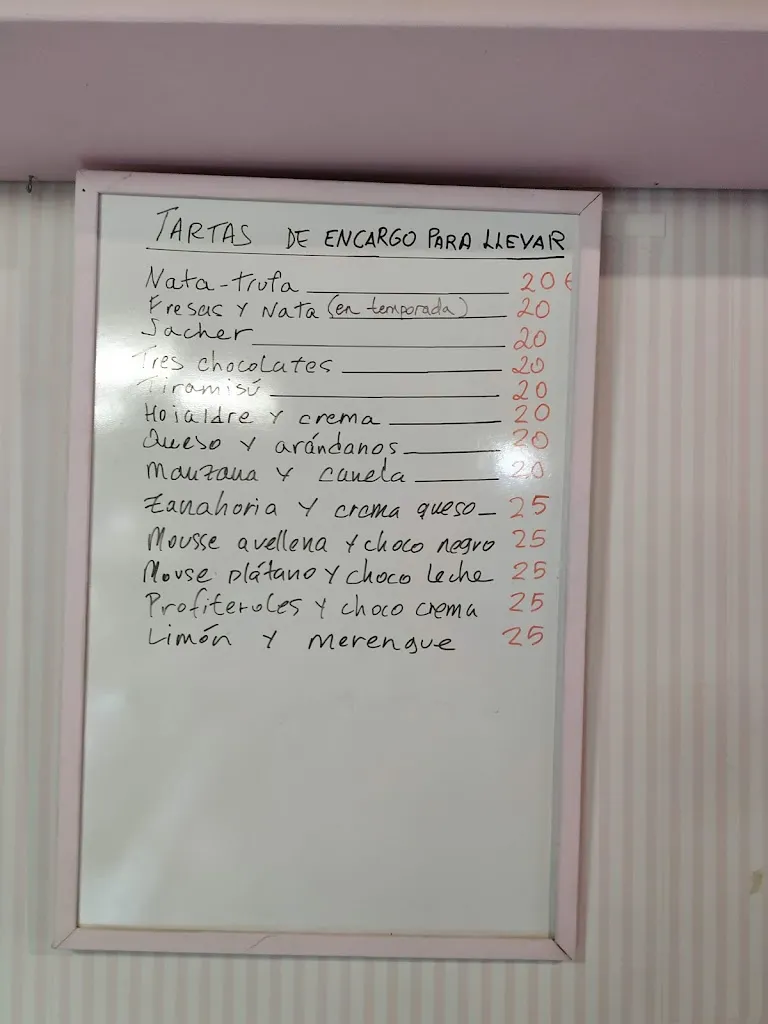 TARTAS DE ENCARGO PARA LLEVAR
Nata-trufa 20€
Fresas y Nata (en temporada) 20
Sacher 20
Tres chocolates 20
Tiramisú 20
Hojaldre y crema 20
Queso y arándanos 20
Manzana y canela 20
Zanahoria y crema queso 25
Mousse avellena y choco negro 25
Mouse plátano y choco leche 25
Profiteroles y choco crema 25
Limón y merengue 25